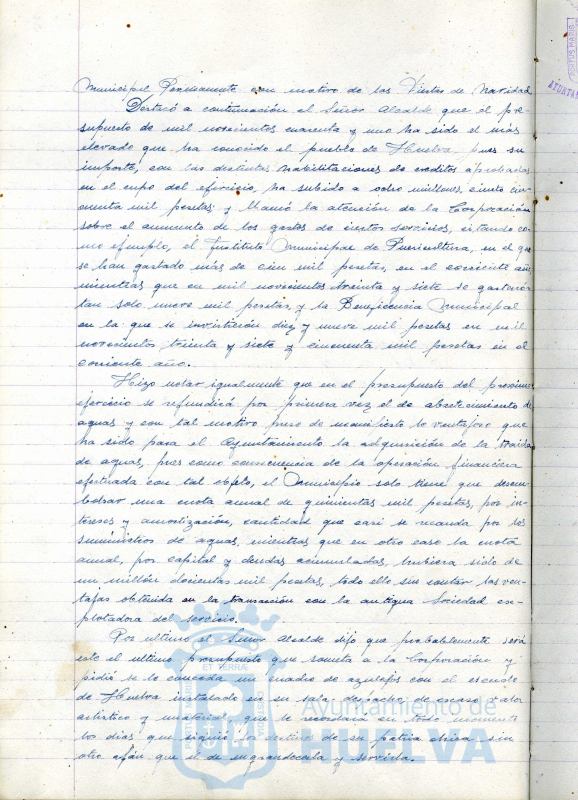 Municipal Permanente con motivo de las Fiestas de Navidad.
Destacó a continuación el Señor Alcalde que el pre-
supuesto de mil novecientos cuarenta y uno ha sido el más
elevado que ha conocido el pueblo de Huelva, pues su
importe, con las distintas habilitaciones de creditos aprobadas
en el curso del ejercicio, ha subido a ocho millones, ciento cin-
cuenta mil pesetas; y llamó la atención de la Corporación
sobre el aumento de los gastos de ciertos servicios, citando co-
mo ejemplo, el Instituto Municipal de Puericultura, en el que
se han gastado más de cien mil pesetas, en el corriente año
mientras que en mil novecientos treinta y siete se gastaron
tan solo nueve mil pesetas, y la Beneficencia Municipal
en la que se invirtieron diez y nueve mil pesetas en mil
novecientos treinta y siete y cincuenta mil pesetas en el
corriente año.
Hizo notar igualmente que en el presupuesto del proximo
ejercicio se refundirá por primera vez el de abastecimiento de
aguas y con tal motivo puso de manifiesto lo ventajoso que
ha sido para el Ayuntamiento la adquisición de la traida
de aguas, pues como consecuencia de la operación financiera
efectuada con tal objeto, el Municipio solo tiene que desem-
bolsar una cuota anual de quinientas mil pesetas, por in-
tereses y amortización, cantidad que casi se recauda por los
suministros de aguas, mientras que en otro caso la cuota
anual, por capital y deudas acumuladas, hubiera sido de
un millón doscientas mil pesetas, todo ello sin contar las ven-
tajas obtenida en la transacción con la antigua Sociedad ex-
plotadora del servicio.
Por ultimo el Señor Alcalde dijo que probablemente será
este el ultimo presupuesto que someta a la Corporación y
pidió se le conceda un cuadro de azulejos con el escudo
de Huelva instalado en su sala despacho de escaso valor
artistico y material, que le recordará en todo momento
los dias que siguió los destinos de su patria chica sin
otro afán que el de engrandecerla y servirla.
Ayuntamiento de
HUELVA